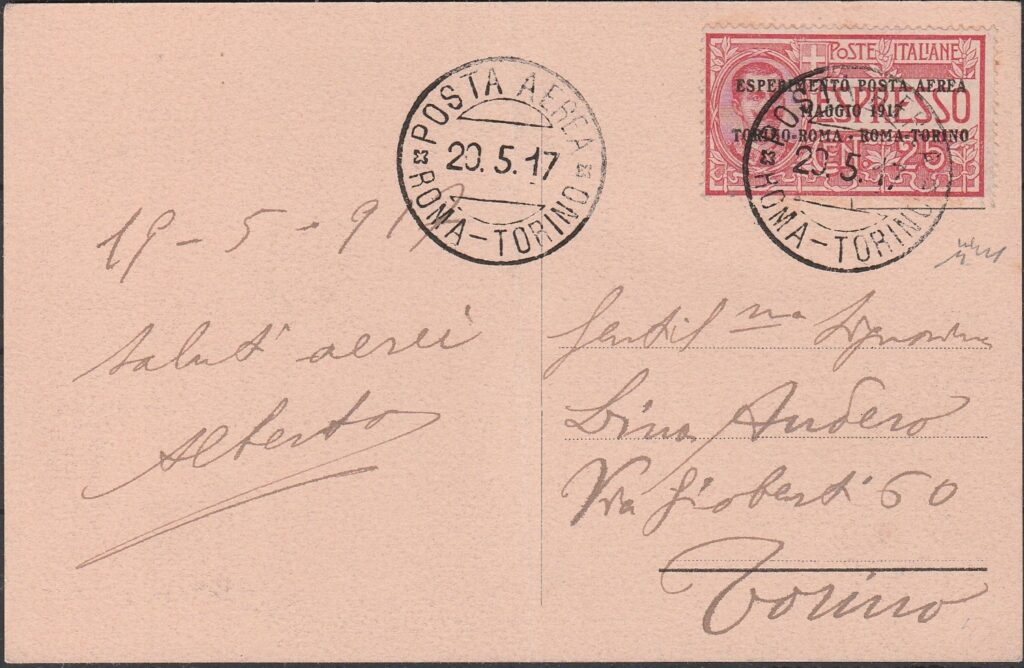 POSTE ITALIANE
ESPRESSO
CENT. 25
ESPERIMENTO POSTA AEREA
MAGGIO 1917
TORINO-ROMA - ROMA-TORINO
POSTA AEREA
20.5.17
ROMA-TORINO
POSTA AEREA
20.5.17
ROMA-TORINO
19-5-917
Saluti aerei
Alberto
Gentil ma Signorina
Lina Audero
Via Gioberti 60
Torino